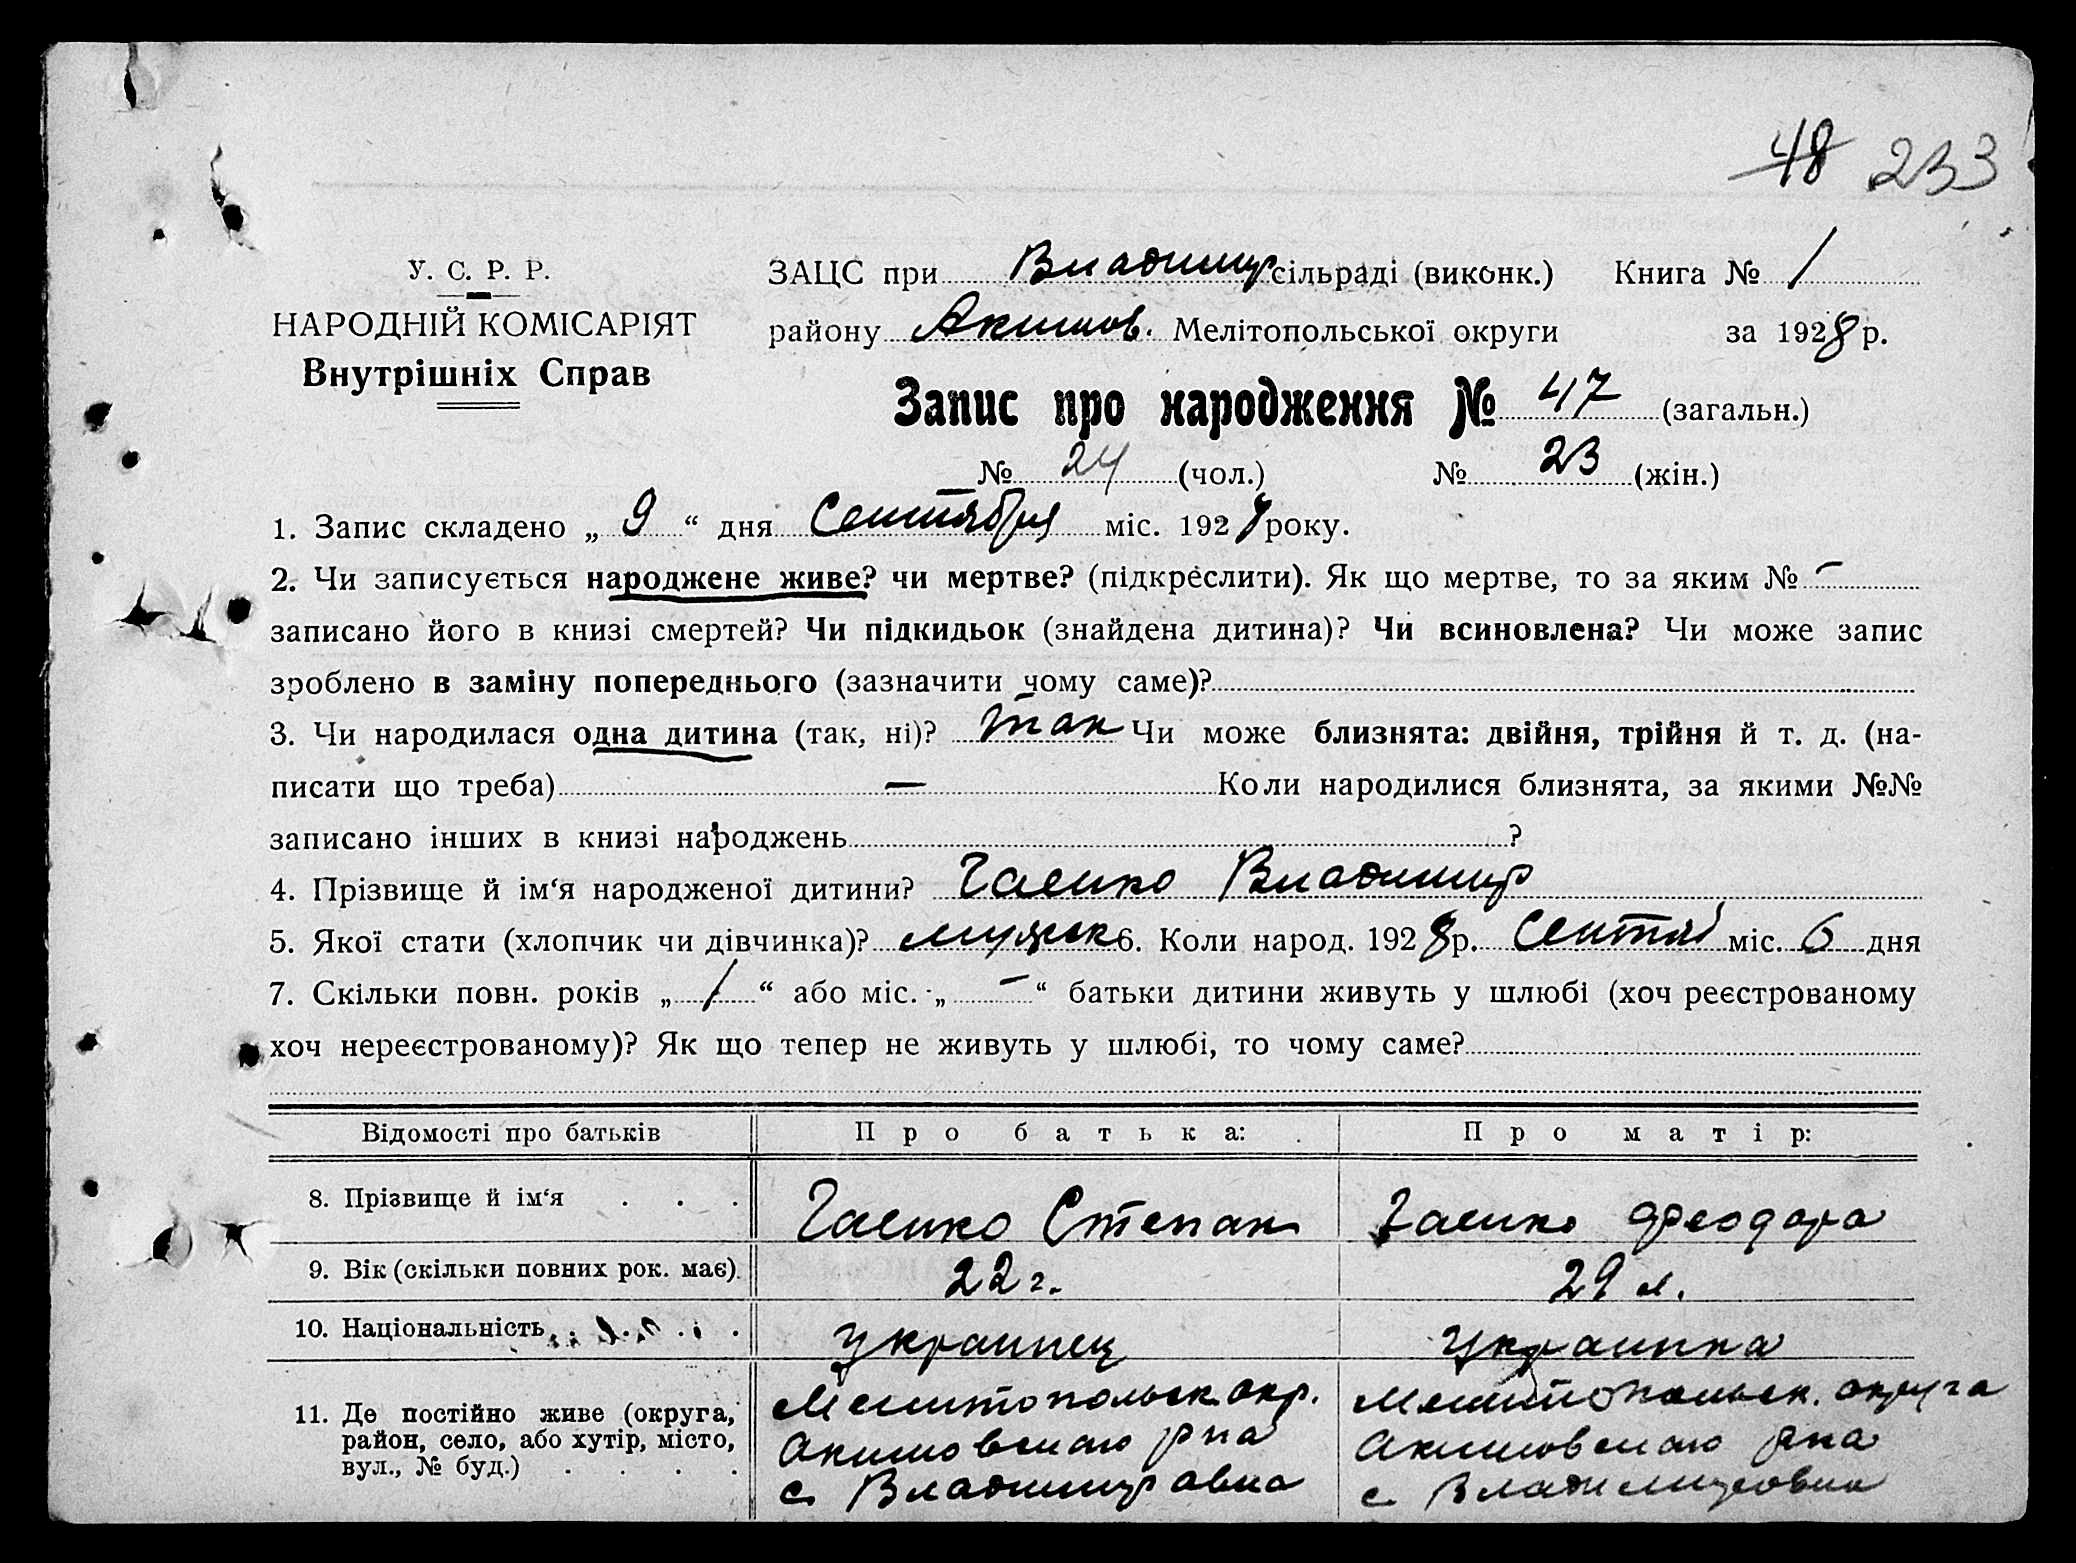 48 233
У. С. Р. Р.
НАРОДНІЙ КОМІСАРІЯТ
Внутрішніх Справ
ЗАЦС при Владимир сільраді (виконк.) Книга № 1
району Акимов. Мелітопольської округи за 1928 р.
Запис про народження № 47 (загальн.)
№ 24 (чол.) № 23 (жін.)
1. Запис складено „ 9 “ дня Сентября міс. 192 року.
2. Чи записується народжене живе? чи мертве? (підкреслити). Як що мертве, то за яким № –
записано його в книзі смертей? Чи підкидьок (знайдена дитина)? Чи всиновлена? Чи може запис
зроблено в заміну попереднього (зазначити чому саме)?
3. Чи народилася одна дитина (так, ні)? так Чи може близнята: двійня, трійня й т. д. (на-
писати що треба) — Коли народилися близнята, за якими №№
записано інших в книзі народжень ?
4. Прізвище й ім‘я народженої дитини? Гаенко Владимир
5. Якої стати (хлопчик чи дівчинка)? мужск 6. Коли народ. 1928 р. Сентяб міс. 6 дня
7. Скільки повн. років „ 1 “ або міс. „ – “ батьки дитини живуть у шлюбі (хоч реєстрованому
хоч нереєстрованому)? Як що тепер не живуть у шлюбі, то чому саме?
Відомості про батьків Про батька: Про матір:
8. Прізвище й ім‘я . . . Гаенко Степан Гаенко Феодора
9. Вік (скільки повних рок. має) 22 г. 29 л.
10. Національність украинец украинка
11. Де постійно живе (округа, район, село, або хутір, місто, вул., № буд.) . . . .
Мелитопольск. окр. Мелитопольск. округа
Акимовского р-на Акимовского р-на
с. Владимировка с. Владимировка